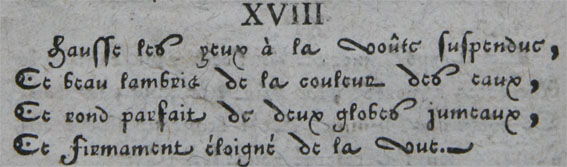 XVIII
Hausse les yeux à la voûte suspendue,
Ce beau lambris de la couleur des eaux,
Ce rond parfait de deux globes jumeaux,
Ce firmament éloigné de la vue.